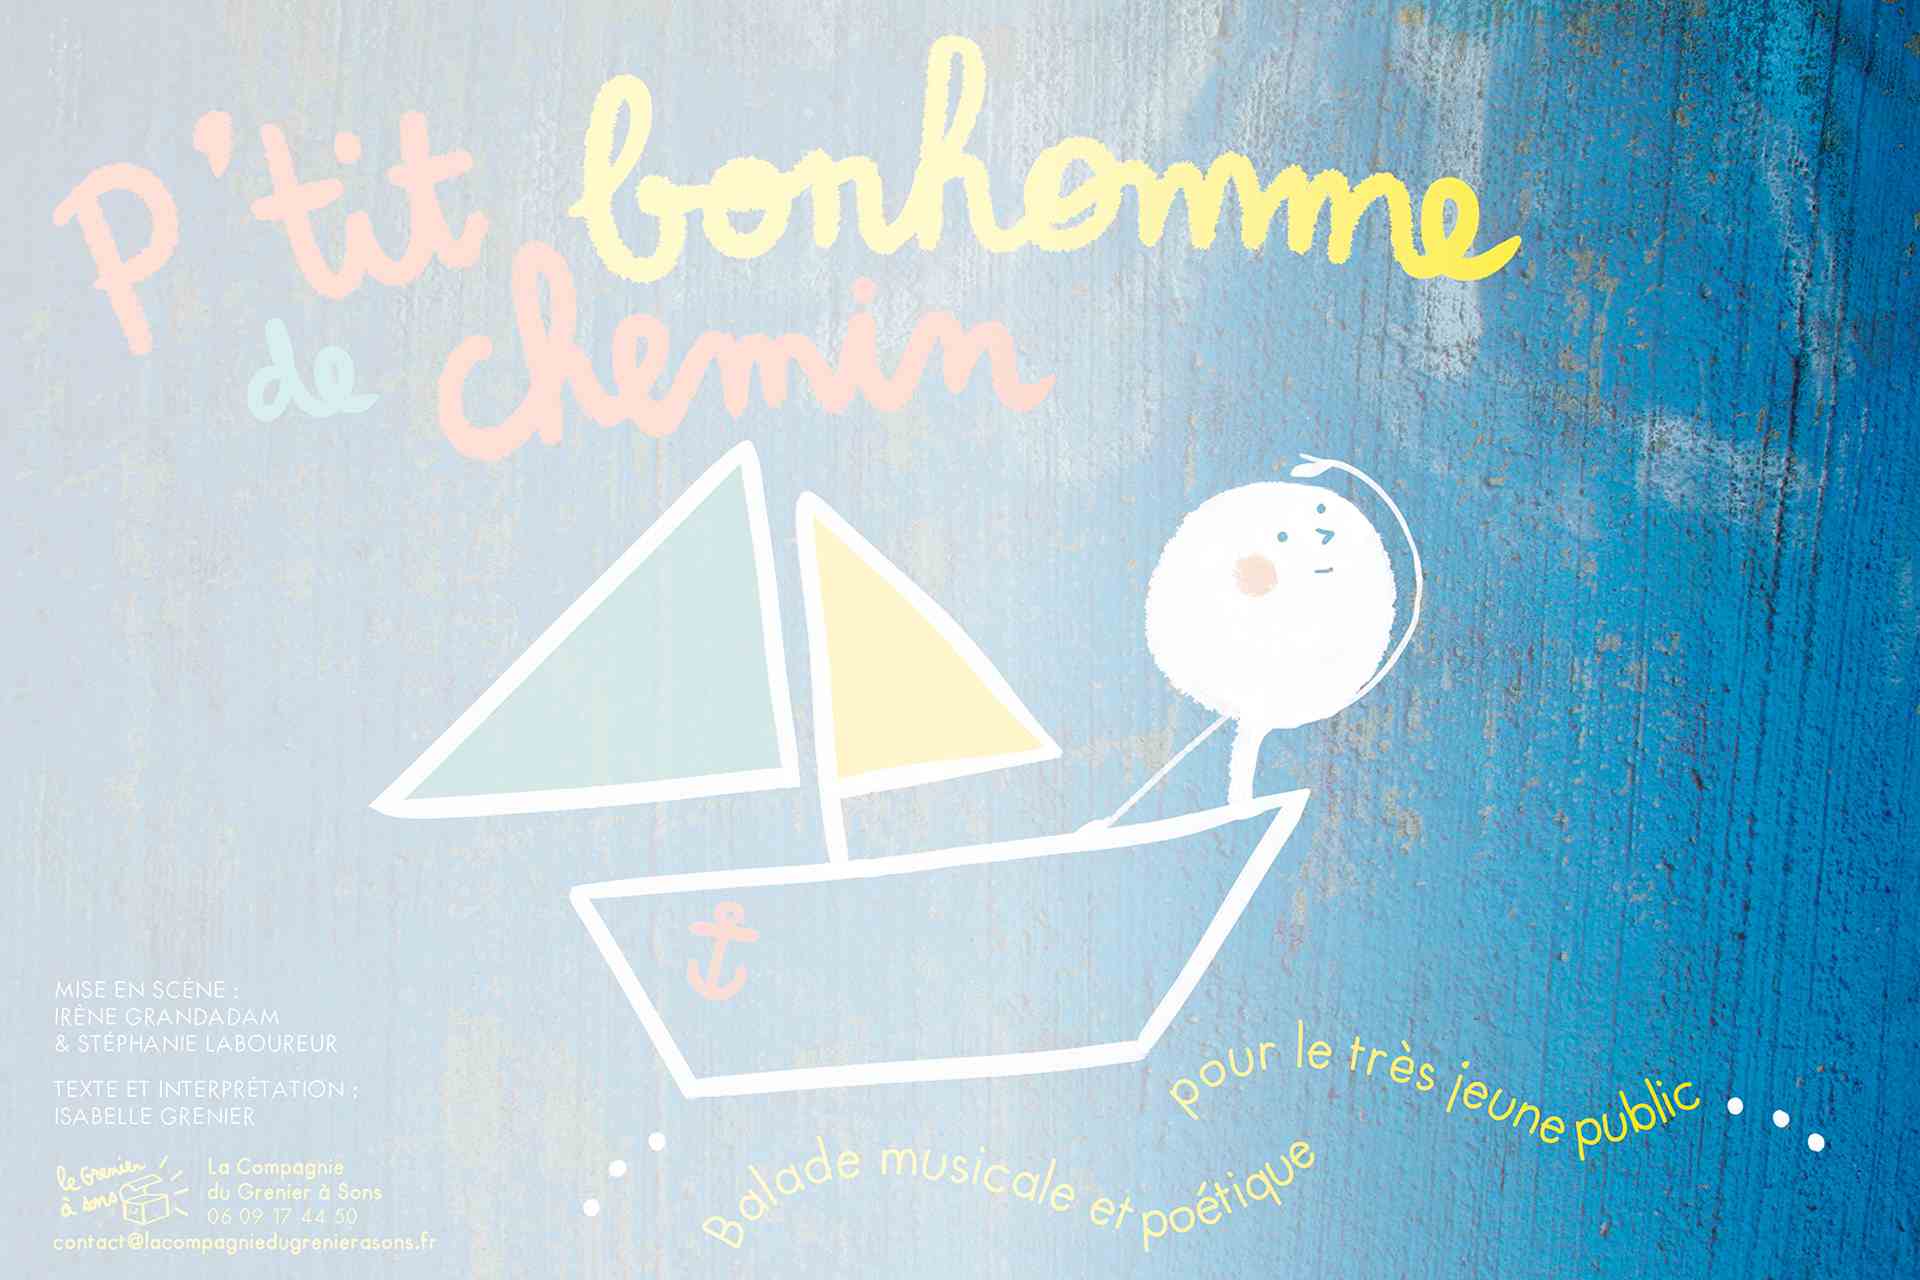 P'tit bonhomme
de chemin
MISE EN SCÉNE :
IRÈNE GRANDADAM
& STÉPHANIE LABOUREUR
TEXTE ET INTERPRÉTATION :
ISABELLE GRENIER
le Grenier
à sons
La Compagnie
du Grenier à Sons
06 09 17 44 50
contact@lacompagniedugrenierasons.fr
Balade musicale et poétique
pour le très jeune public